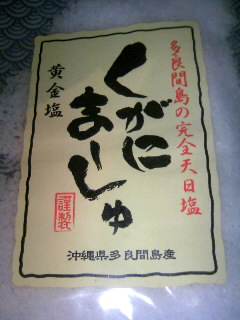 多良間島の完全天日塩
くがに
まーしゅ
黄金塩
謹製
沖縄県多良間島産